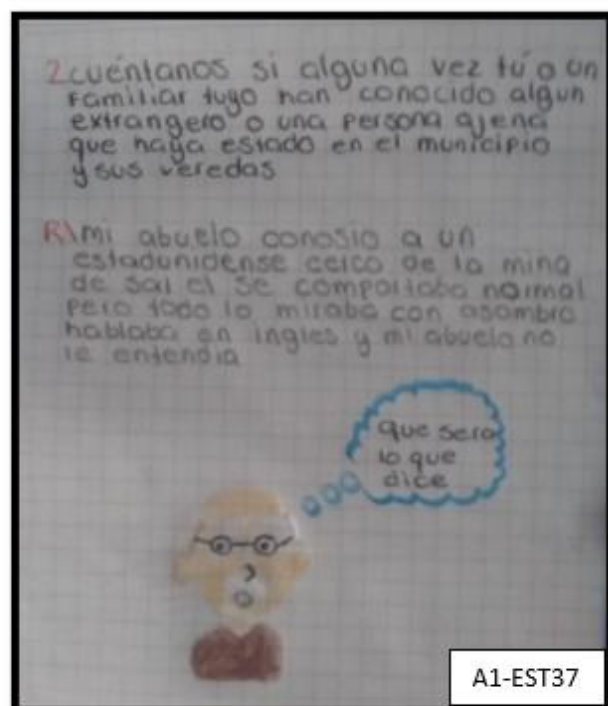 2 cuéntanos si alguna vez tú o un
Familiar tuyo han conocido algun
extrangero o una persona ajena
que haya estado en el municipio
y sus veredas
R\ mi abuelo conosio a un
estadunidense cerca de la mina
de sal el se comportaba normal
pero todo lo miraba con asombro
hablaba en ingles y mi abuelo no
le entendia
que sera
lo que
dice
A1-EST37